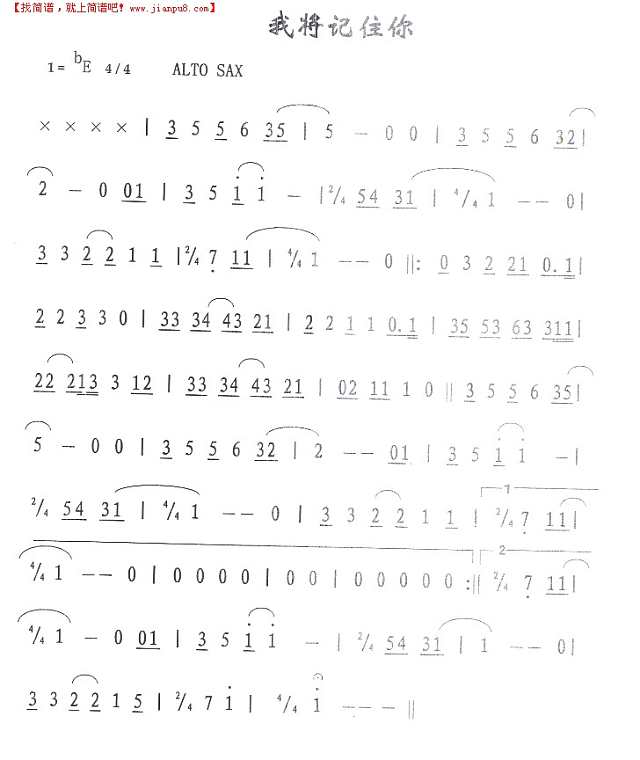 【找简谱，就上简谱吧!www.jianpu8.com】
我将记住你
1= bE 4/4 ALTO SAX
× × × × | 3 5 5 6 35 | 5 — 0 0 | 3 5 5 6 32 |
2 — 0 01 | 3 5 i i — | 2/4 54 31 | 4/4 1 —— 0 |
3 3 2 2 1 1 | 2/4 7 11 | 4/4 1 —— 0 ||: 0 3 2 21 0.1 |
2 2 3 3 0 | 33 34 43 21 | 2 2 1 1 0.1 | 35 53 63 311 |
22 213 3 12 | 33 34 43 21 | 02 11 1 0 || 3 5 5 6 35 |
5 — 0 0 | 3 5 5 6 32 | 2 —— 01 | 3 5 i i — |
2/4 54 31 | 4/4 1 —— 0 | 3 3 2 2 1 1 | 1 2/4 7 11 |
4/4 1 —— 0 | 0 0 0 0 | 0 0 | 0 0 0 0 0 :|| 2 2/4 7 11 |
4/4 1 — 0 01 | 3 5 i i — | 2/4 54 31 | 1 —— 0 |
3 3 2 2 1 5 | 2/4 7 i | 4/4 i ——— ||